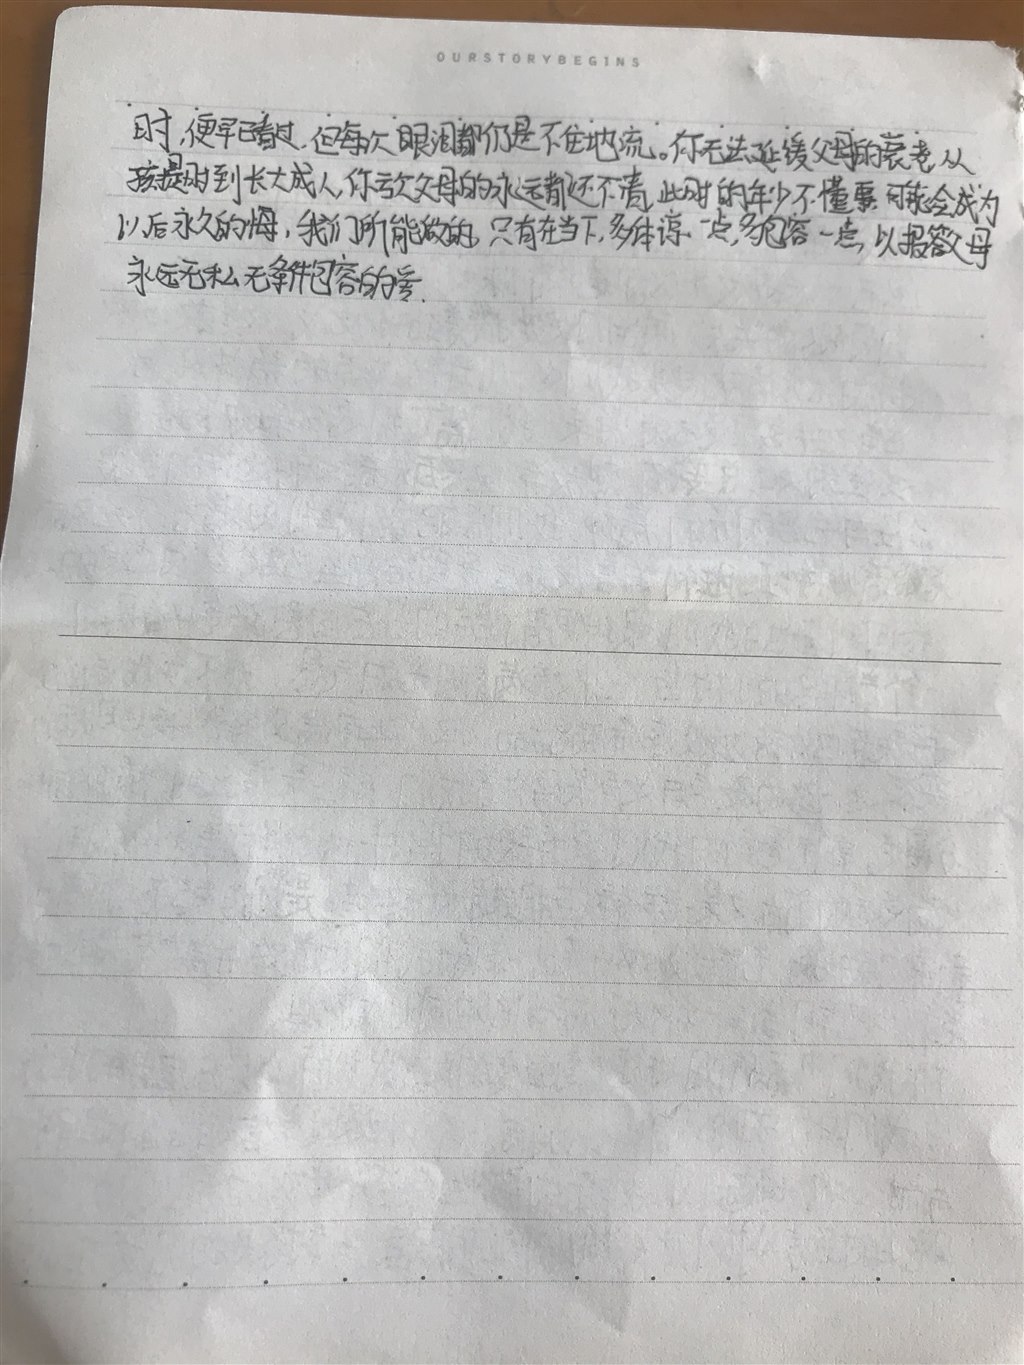 OURSTORYBEGINS
时,便早已看过,但每次眼泪都仍是不住地流。你无法延缓父母的衰老从
孩提时到长大成人,你亏欠父母的永远都还不清,此时的年少不懂事可能会成为
以后永久的悔,我们所能做的,只有在当下,多体谅一点,多包容一点,以报答父母
永远无私无条件包容的爱.